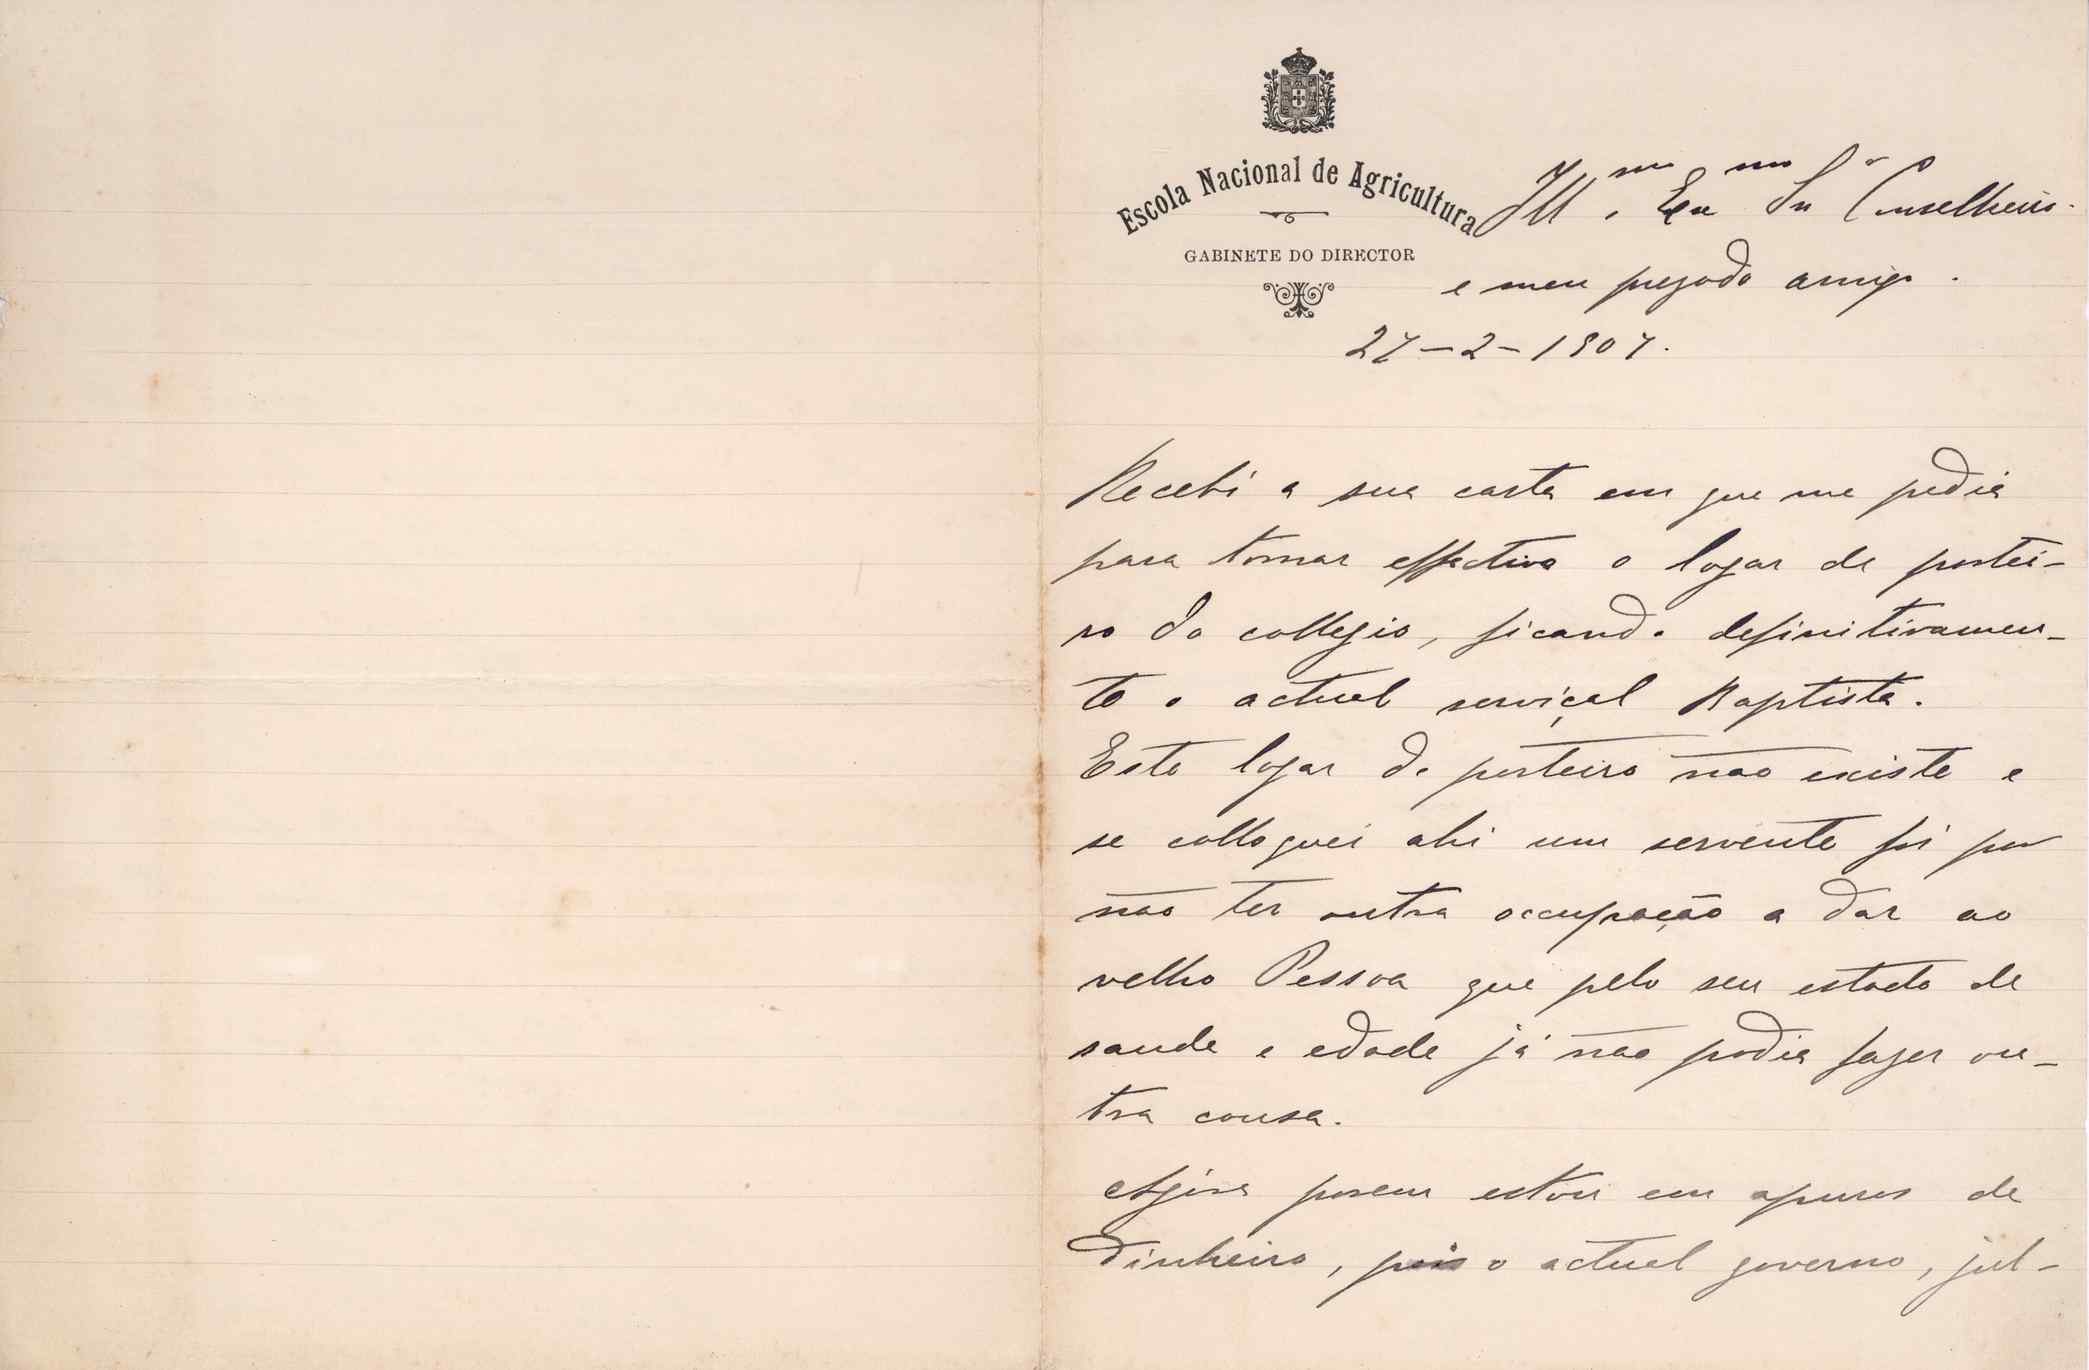 Escola Nacional de Agricultura
GABINETE DO DIRECTOR
Ill.mo Exmo Sr. Conselheiro.
e meu prezado amigo.
27-2-1907.
Recebi a sua carta em que me pedia
para tornar effectivo o logar de portei-
ro do collegio, ficando definitivamen-
te o actual serviçal Baptista.
Este logar de porteiro não existe e
se colloquei ahi um servente foi por
não ter outra occupação a dar ao
velho Pessoa que pelo seu estado de
saude e edade já não podia fazer ou-
tra cousa.
Agora porem estou em apuros de
dinheiro, pois o actual governo, jul-